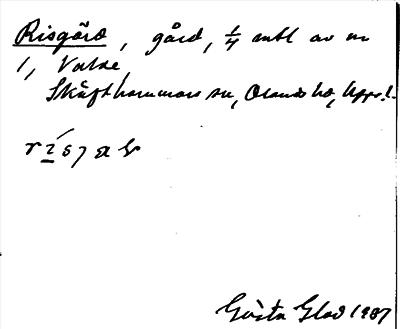 Risgård, gård, 1/4 mtl av nr
1, Valne
Skäfthammars sn, Olands hd, Uppl.
Gösta Glad 1987